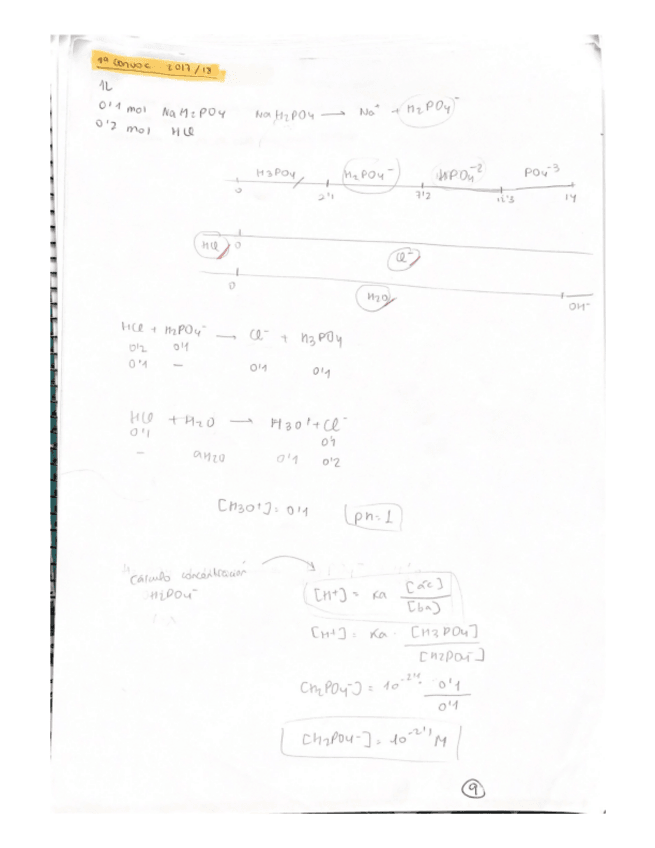 1ª Convoc 2017/18
1L
0'1 mol NaH2PO4 NaH2PO4 → Na+ + H2PO4-
0'2 mol HCl
H3PO4 H2PO4- HPO4-2 PO4-3
0 2'1 7'2 12'3 14
HCl 0 Cl-
0 H2O OH-
HCl + H2PO4- → Cl- + H3PO4
0'2 0'1
0'1 - 0'1 0'1
HCl + H2O → H3O+ + Cl-
0'1 0'1
- aH2O 0'1 0'2
[H3O+] = 0'1 pH = 1
Cálculo concentración
H2PO4-
[H+] = Ka [ac]/[ba]
[H+] = Ka · [H3PO4]/[H2PO4-]
[H2PO4-] = 10-2'1 · 0'1/0'1
[H2PO4-] = 10-2'1 M
9